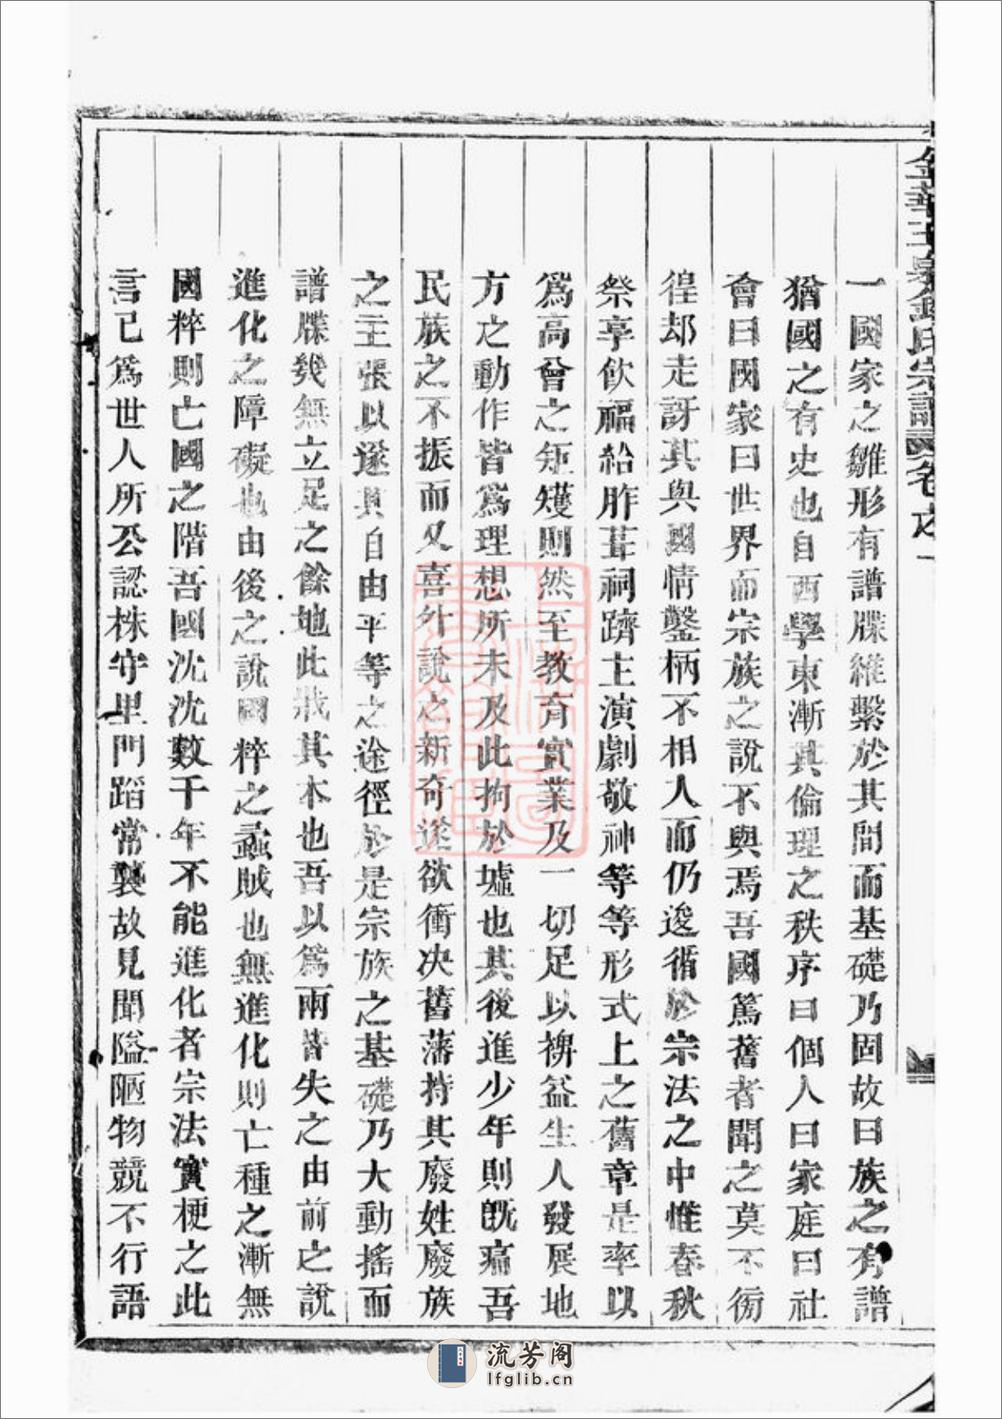 金華玉泉鍾氏宗譜 卷之一
一國家之雛形有譜牒維繫於其間而基礎乃固故曰族之有譜
猶國之有史也自西學東漸其倫理之秩序曰個人曰家庭曰社
會曰國家曰世界而宗族之說不與焉吾國篤舊者聞之莫不徬
徨却走訝其與國情鑿柄不相人而仍逡循於宗法之中惟春秋
祭享飲福給胙葺祠躋主演劇敬神等等形式上之舊章是率以
爲高曾之矩矱則然至教育實業及一切足以裨益生人發展地
方之動作皆爲理想所未及此拘於墟也其後進少年則旣痛吾
民族之不振而又喜外說之新奇遂欲衝決舊藩持其廢姓廢族
之主張以遂其自由平等之途徑於是宗族之基礎乃大動搖而
譜牒幾無立足之餘地此戕其本也吾以爲兩皆失之由前之說
進化之障礙也由後之說國粹之蟊賊也無進化則亡種之漸無
國粹則亡國之階吾國沈沈數千年不能進化者宗法實梗之此
言已爲世人所公認株守里門蹈常襲故見聞隘陋物競不行語
流芳阁
lfglib.cn